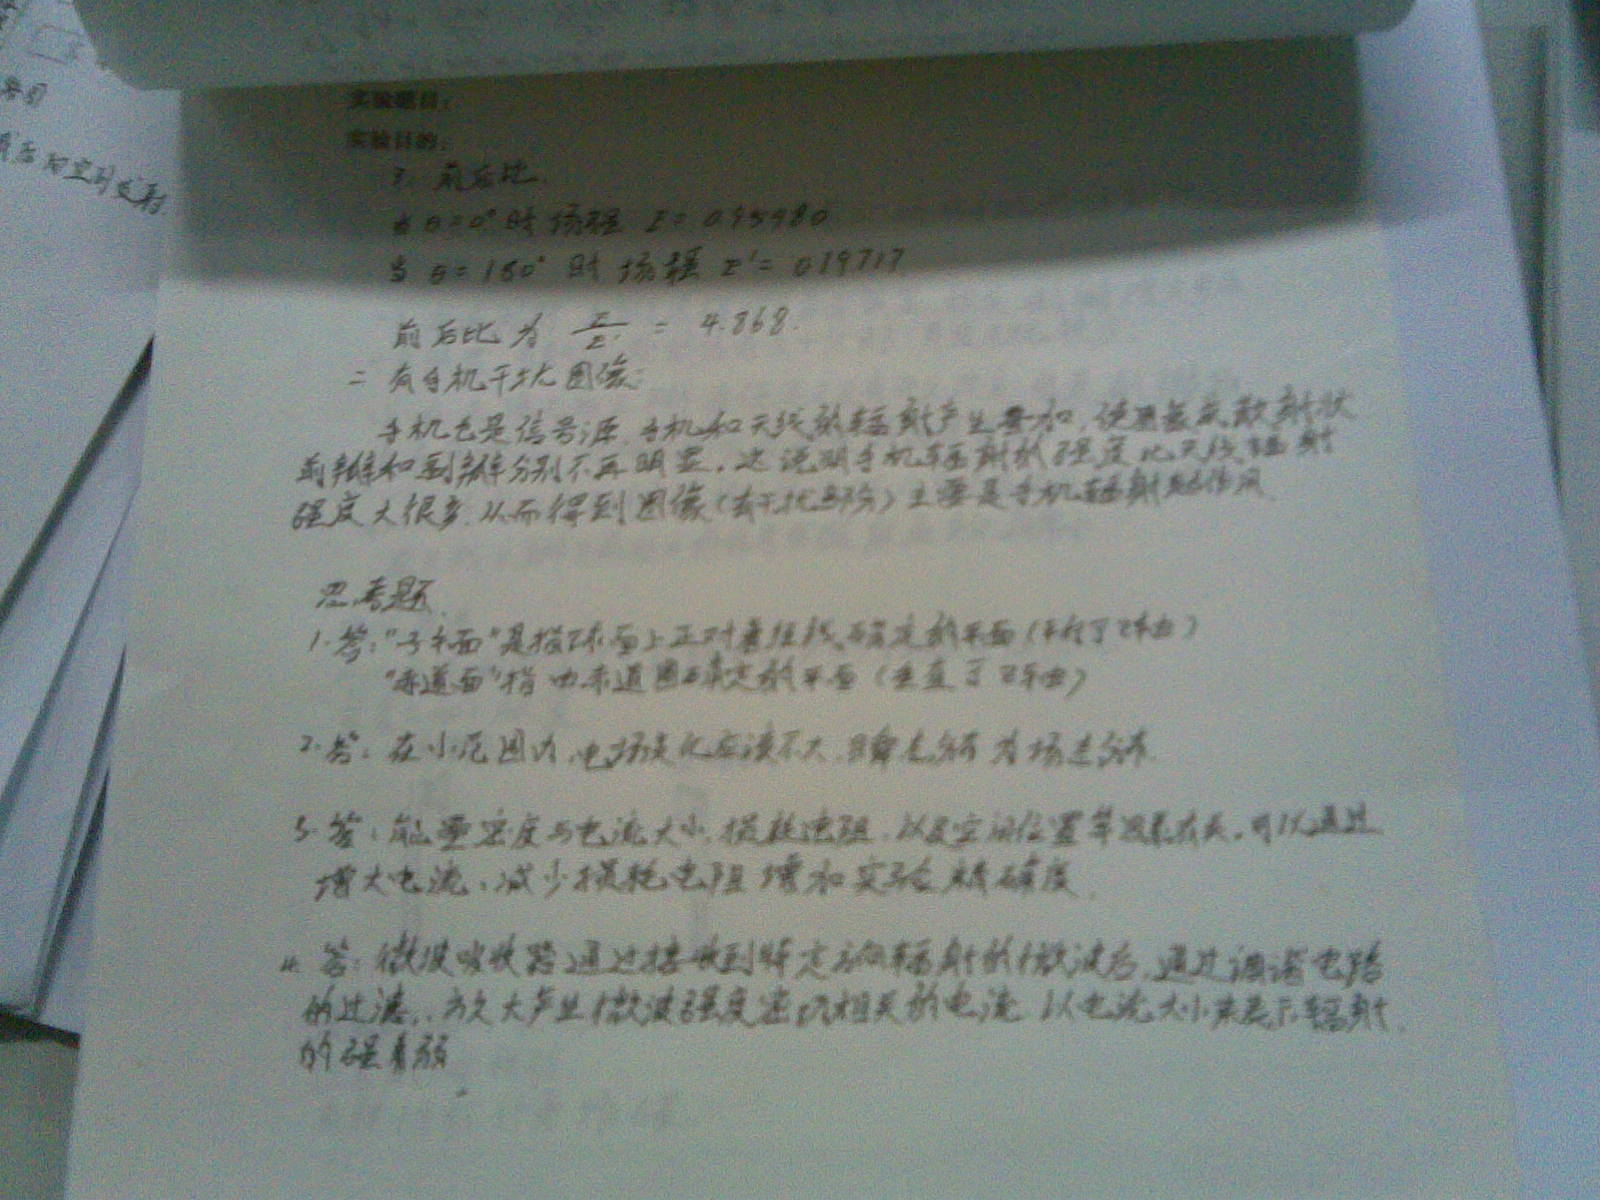 实验题目：
实验目的：
3. 前后比.
当θ=0°时 场强 E= 0.95980
当 θ=180° 时 场强 E'= 0.19717
前后比为 E/E' = 4.868.
二 有手机干扰图像:
手机也是信号源.手机和天线的辐射产生叠加,使图象成散射状
前瓣和副瓣分别不再明显.这说明手机辐射的强度比天线辐射
强度大很多.从而得到图像(有干扰部分)主要是手机辐射的作用.
思考题
1.答:"子午面"是指球面上正对着经线确定的平面(平行于Z轴)
"赤道面"指由赤道圈确定的平面(垂直于Z轴)
2.答:在小范围内,电场变化应该不大,
3.答:能量密度与电流大小,损耗电阻,以及空间位置等因素有关.可以通过
增大电流、减少损耗电阻增加实验精确度.
4.答:微波吸收器通过接收到特定方向辐射的微波后,通过调谐电路
的过滤,放大产生微波强度密切相关的电流 以电流大小来表示辐射
的强弱
前后